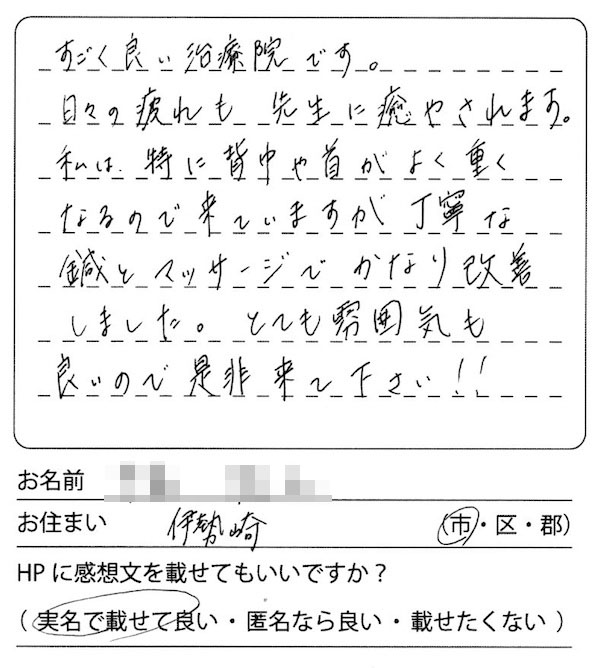 すごく良い治療院です。
日々の疲れも 先生に癒やされます。
私は、特に背中や首がよく重く
なるので来ていますが丁寧な
鍼とマッサージでかなり改善
しました。とても雰囲気も
良いので是非来て下さい!!
お名前
お住まい 伊勢崎 (市・区・郡)
HPに感想文を載せてもいいですか?
(実名で載せて良い・匿名なら良い・載せたくない)